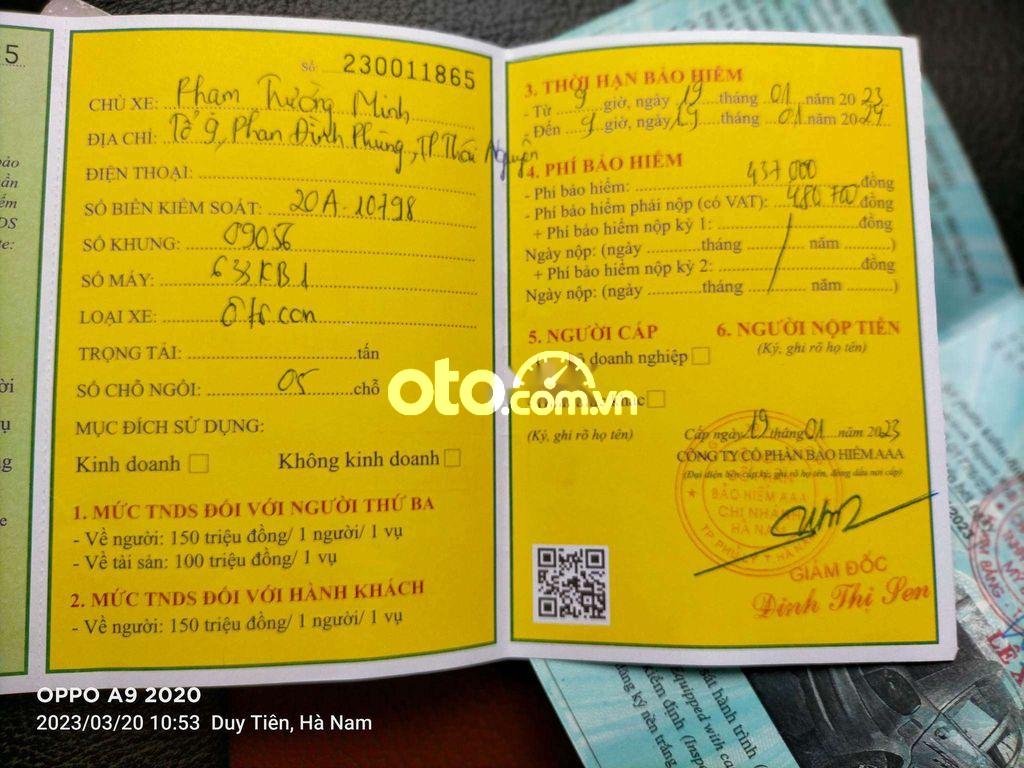 5
Số: 230011865
CHỦ XE: Phạm Trường Minh
ĐỊA CHỈ: Tổ 9, Phan Đình Phùng, TP Thái Nguyên
ĐIỆN THOẠI:
SỐ BIỂN KIỂM SOÁT: 20A-10798
SỐ KHUNG: 09056
SỐ MÁY: 633KB1
LOẠI XE: Ôtô con
TRỌNG TẢI: tấn
SỐ CHỖ NGỒI: 05 chỗ
MỤC ĐÍCH SỬ DỤNG:
Kinh doanh
Không kinh doanh
1. MỨC TNDS ĐỐI VỚI NGƯỜI THỨ BA
- Về người: 150 triệu đồng/ 1 người/ 1 vụ
- Về tài sản: 100 triệu đồng/ 1 vụ
2. MỨC TNDS ĐỐI VỚI HÀNH KHÁCH
- Về người: 150 triệu đồng/ 1 người/ 1 vụ
3. THỜI HẠN BẢO HIỂM
- Từ 9 giờ, ngày 19 tháng 01 năm 2023
- Đến 9 giờ, ngày 19 tháng 01 năm 2024
4. PHÍ BẢO HIỂM
- Phí bảo hiểm: 437 000 đồng
- Phí bảo hiểm phải nộp (có VAT): 480 700 đồng
+ Phí bảo hiểm nộp kỳ 1: đồng
Ngày nộp: (ngày tháng năm )
+ Phí bảo hiểm nộp kỳ 2: đồng
Ngày nộp: (ngày tháng năm )
5. NGƯỜI CẤP
6. NGƯỜI NỘP TIỀN
(Ký, ghi rõ họ tên)
doanh nghiệp
khác
(Ký, ghi rõ họ tên)
Cấp ngày 19 tháng 01 năm 2023
CÔNG TY CỔ PHẦN BẢO HIỂM AAA
(Đại diện bên cấp ký, ghi rõ họ tên, đóng dấu nơi cấp)
BẢO HIỂM AAA
CHI NHÁNH
HÀ NAM
GIÁM ĐỐC
Đinh Thị Sen
oto.com.vn
OPPO A9 2020
2023/03/20 10:53 Duy Tiên, Hà Nam